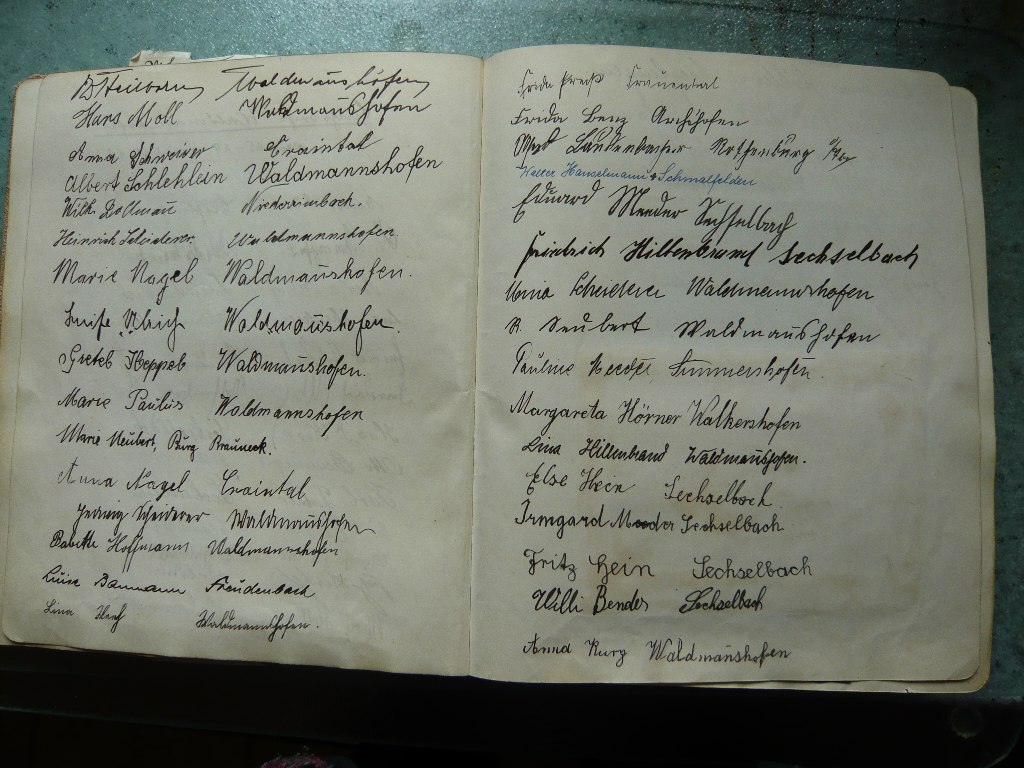 Waldmannshofen
Hans Moll Waldmaushofen
Anna Schweizer Craintal
Albert Schlehlein Waldmannshofen
Wilh. Dollmann Niederrimbach.
Heinrich Scheiderer. Waldmannshofen
Marie Nagel Waldmaushofen.
Luise Ulrich Waldmaushofen.
Greteb Heppeb Waldmaushofen.
Marie Paulus Waldmannshofen
Marie Neubert, Burg Brauneck.
Anna Nagel Craintal
Hedwig Scheiderer Waldmaushofen
Babette Hoffmann Waldmannshofen
Luise Baumann Freudenbach
Lina Waldmannshofen.
Frida Frauental
Frida Benz Archshofen
Rothenburg
Hanselmann Schmalfelden
Eduard Meeder Sechselbach
Friedrich Hillenbrand Sechselbach
Maria Scheiderer Waldmannshofen
R. Seubert Waldmaushofen
Pauline Simmershofen.
Margareta Hörner Walkershofen
Lina Hillenbrand Waldmaushofen.
Else Hein Sechselbach
Irmgard Meeder Sechselbach
Fritz Hein Sechselbach
Willi Bender Sechselbach
Anna Kurz Waldmanshofen